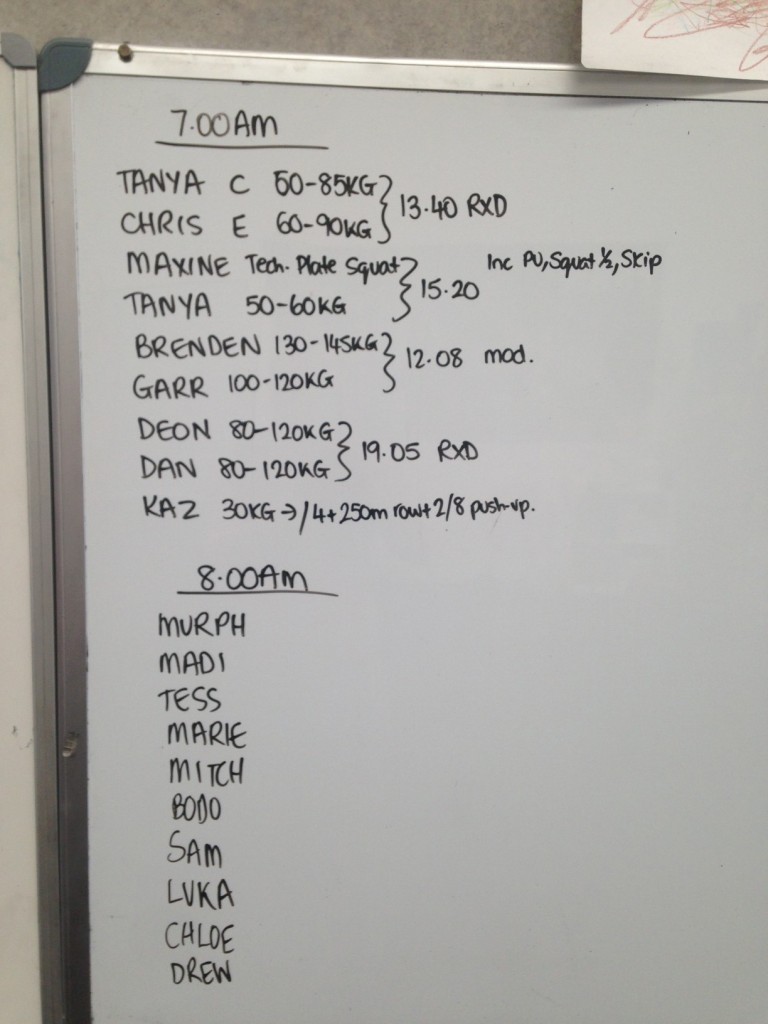 7.00AM
TANYA C 50-85KG
CHRIS E 60-90KG } 13.40 RXD
MAXINE Tech. Plate Squat
TANYA 50-60KG } 15.20 Inc PU, Squat ½, Skip
BRENDEN 130-145KG
GARR 100-120KG } 12.08 mod.
DEON 80-120KG
DAN 80-120KG } 19.05 RXD
KAZ 30KG → /4+250m row+2/8 push-up.
8.00AM
MURPH
MADI
TESS
MARIE
MITCH
BODO
SAM
LUKA
CHLOE
DREW